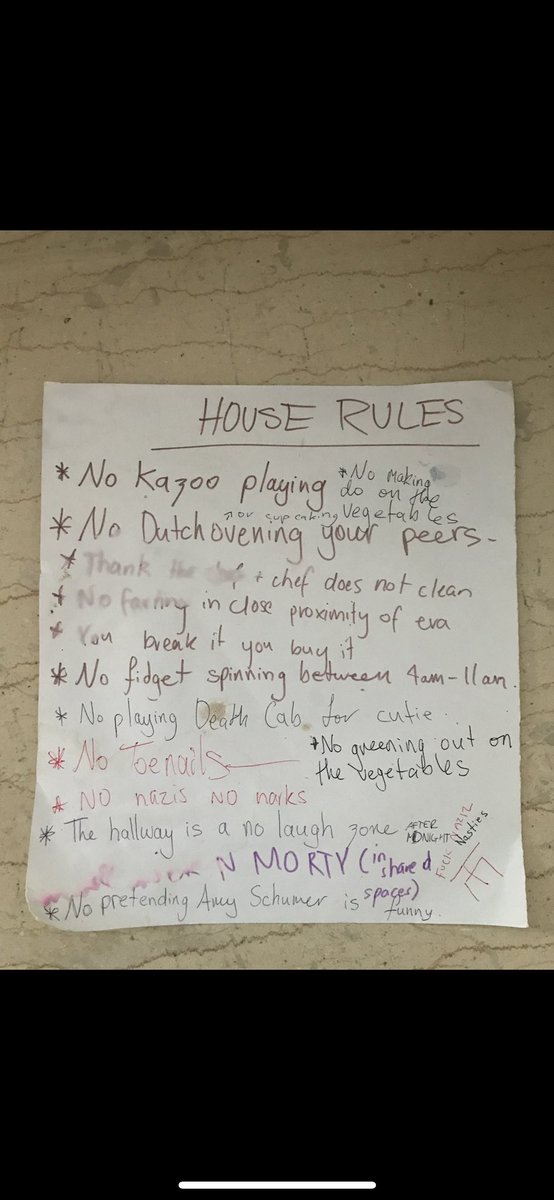 HOUSE RULES
* No Kazoo playing
* No making
do on the
vegetables
* No Dutch ovening your peers-
↗ or cup eating
* Thank the chef + chef does not clean
* No farting in close proximity of eva
* You break it you buy it
* No fidget spinning between 4am-11am.
* No playing Death Cab for cutie.
* No toenails
* No greening out on
the vegetables
* NO nazis NO narks
* The hallway is a no laugh zone AFTER
MIDNIGHT
FUCK
Nasties
N MORTY (in shared
spaces)
* No pretending Amy Schumer is funny.